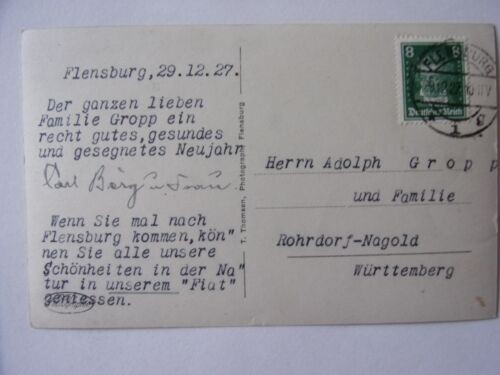 Flensburg, 29.12.27.
Der ganzen lieben
Familie Gropp ein
recht gutes, gesundes
und gesegnetes Neujahr
Carl Börg u Frau.
Wenn Sie mal nach
Flensburg kommen, kön"
nen Sie alle unsere
Schönheiten in der Na"
tur in unserem "Fiat"
geniessen.
T. Thomsen, Photographe Flensburg
8 8
Deutsches Reich
FLENSBURG
1
Herrn Adolph Gropp
und Familie
Rohrdorf-Nagold
Württemberg